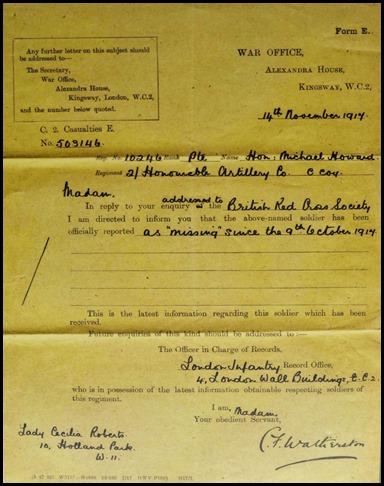 Form E.
Any further letter on this subject should
be addressed to—
The Secretary,
War Office,
Alexandra House,
Kingsway, London, W.C.2,
and the number below quoted.
WAR OFFICE,
ALEXANDRA HOUSE,
KINGSWAY, W.C.2,
14th November 1917.
C. 2. Casualties E.
No. 503146.
Reg. No. 10246 Rank Pte Name Hon: Michael Howard.
Regiment 2/ Honourable Artillery Co. C coy.
Madam.
In reply to your enquiry addressed to the British Red Cross Society
I am directed to inform you that the above-named soldier has been
officially reported as "missing" since the 9th October 1917.
This is the latest information regarding this soldier which has been
received.
Future enquiries of this kind should be addressed to :—
The Officer in Charge of Records,
London Infantry Record Office,
4, London Wall Buildings, E.C.2.
who is in possession of the latest information obtainable respecting soldiers of
this regiment.
I am, Madam.
Your obedient Servant,
C F Watherston
Lady Cecilia Roberts.
10, Holland Park.
W-11.